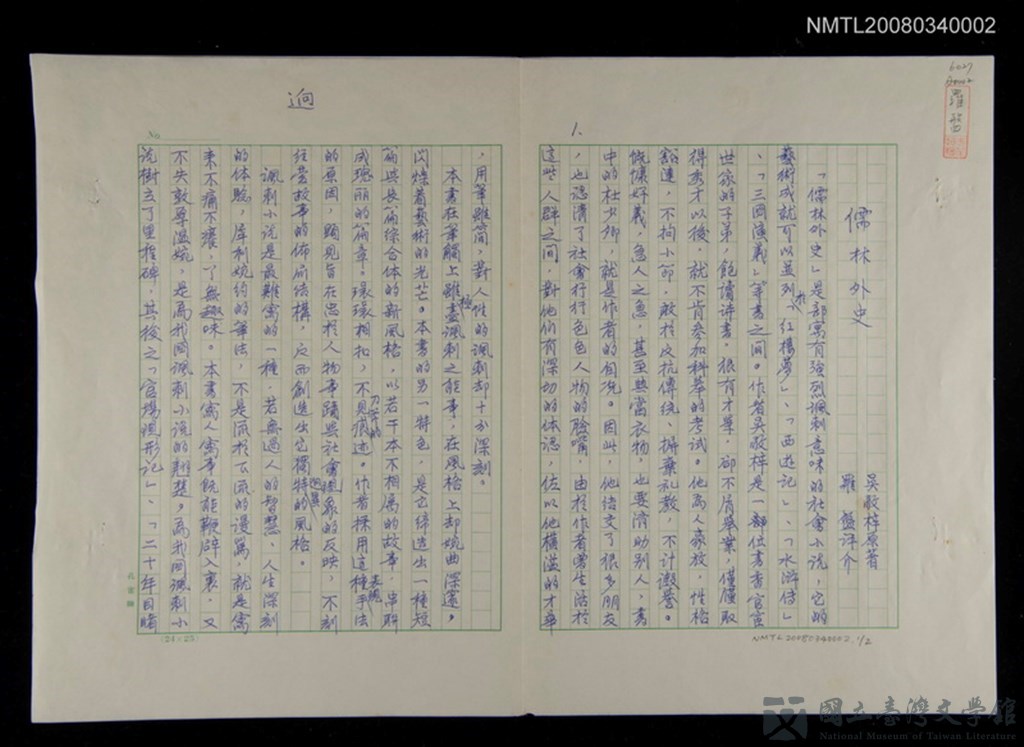 NMTL20080340002
6027
羅盤
1.
儒林外史
吳敬梓原著
羅盤評介
「儒林外史」是部富有強烈諷刺意味的社會小說,它的
藝術成就可以並列於「紅樓夢」、「西遊記」、「水滸傳」
、「三國演義」等書之間。作者吳敬梓是一位書香官宦
世家的子弟,飽讀詩書。很有才華,卻不屑舉業,僅僅取
得秀才以後,就不肯參加科舉的考試。他為人豪放,性格
豁達,不拘小節,敢於反抗傳統、摒棄礼教,不計譭譽。
慷慨好義,急人之急,甚至典當衣物,也要濟助別人,書
中的杜少卿,就是作者的自況。因此,他結交了很多朋友
,也認清了社會行行色色人物的臉嘴,由於作者曾生活於
這些人群之間,對他們有深切的体認,佐以他橫溢的才華
NMTL20080340002.1/2
迥
No
,用筆雖簡,對人性的諷刺却十分深刻。
本書在筆觸上雖極盡諷刺之能事,在風格上却婉曲深邃,
閃爍着藝術的光芒。本書的另一特色,是它締造出一種短
篇與長篇綜合体的新風格,以若干本不相屬的故事,串聯
成瑰麗的篇章。環環相扣,不見刀斧的痕迹。作者採用這種表現手法
的原因,顯見旨在忠於人物事蹟與社會現象的反映,不刻
經營故事的佈局結構,反而創造出它獨特的風格。
諷刺小說是最難寫的一種,若無過人的智慧、人生深刻
的体驗,犀利婉約的筆法,不是流於下流的謾罵,就是寫
來不痛不癢,了無趣味。本書寫人寫事既能鞭辟入裏。又
不失敦厚溫婉,是為我國諷刺小說的翹楚,為我國諷刺小
說樹立了里程碑,其後之「官場現形記」、「二十年目睹
(24×25)
國立臺灣文學館
National Museum of Taiwan Literature